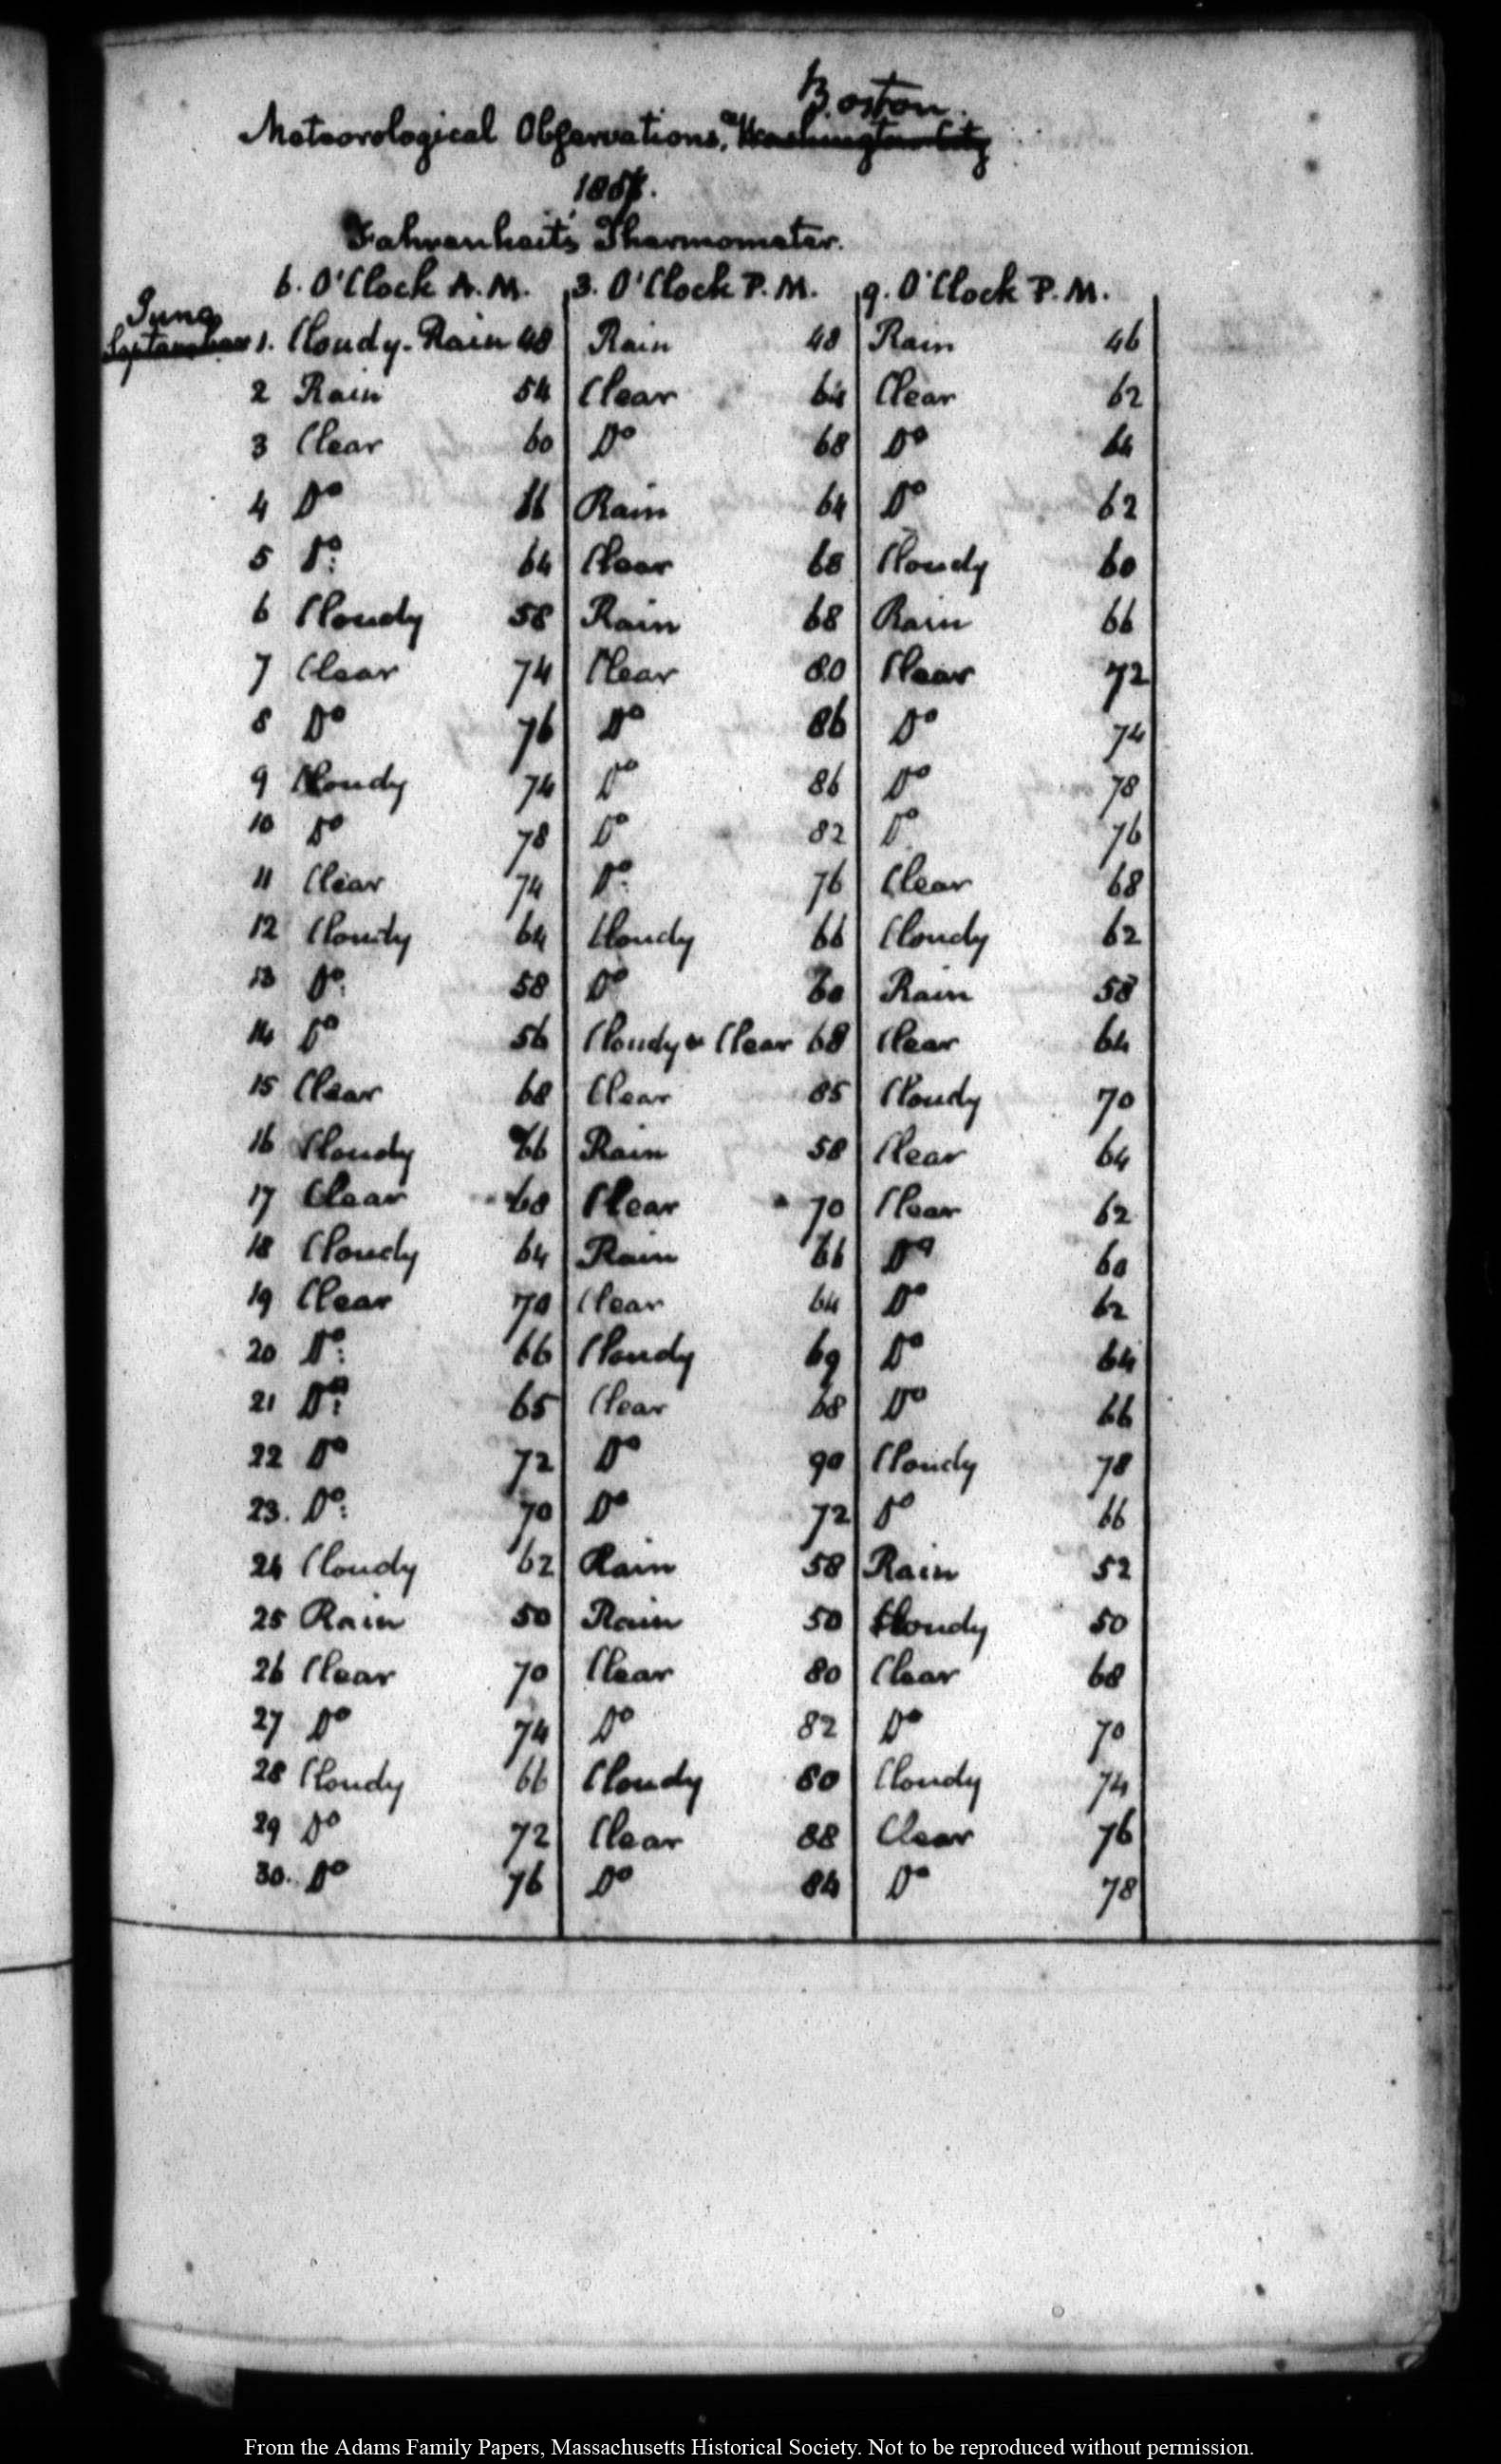 Boston.
Meteorological Observations, Washington City
185
Fahrenheit's Thermometer.
6. O'Clock A. M. 3. O'Clock P. M. 9. O'Clock P. M.
June
September 1. Cloudy. Rain 48 Rain 48 Rain 46
2 Rain 54 Clear 64 Clear 62
3 Clear 60 Do 68 Do 64
4 Do 66 Rain 64 Do 62
5 Do: 64 Clear 68 Cloudy 60
6 Cloudy 58 Rain 68 Rain 66
7 Clear 74 Clear 80 Clear 72
8 Do 76 Do 86 Do 74
9 Cloudy 74 Do 86 Do 78
10 Do 78 Do 82 Do 76
11 Clear 74 Do: 76 Clear 68
12 Cloudy 64 Cloudy 66 Cloudy 62
13 Do: 58 Do 60 Rain 58
14 Do 56 Cloudy & Clear 68 Clear 64
15 Clear 68 Clear 85 Cloudy 70
16 Cloudy 66 Rain 58 Clear 64
17 Clear 68 Clear 70 Clear 62
18 Cloudy 64 Rain 66 Do 60
19 Clear 70 Clear 64 Do 62
20 Do: 66 Cloudy 69 Do 64
21 Do: 65 Clear 68 Do 66
22 Do 72 Do 90 Cloudy 78
23. Do: 70 Do 72 Do 66
24 Cloudy 62 Rain 58 Rain 52
25 Rain 50 Rain 50 Cloudy 50
26 Clear 70 Clear 80 Clear 68
27 Do 74 Do 82 Do 70
28 Cloudy 66 Cloudy 80 Cloudy 74
29 Do 72 Clear 88 Clear 76
30. Do 76 Do 84 Do 78
From the Adams Family Papers, Massachusetts Historical Society. Not to be reproduced without permission.